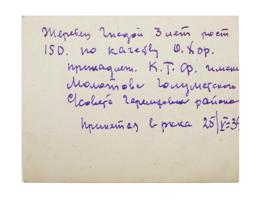 Жеребец Гнедой 3 лет рост
150. по качеству О.Хор.
принадлеж. К.Т.Ф. имени
Молотова Голуметского
С/совета Черемховского района
Принятая в РККА 25/V-39